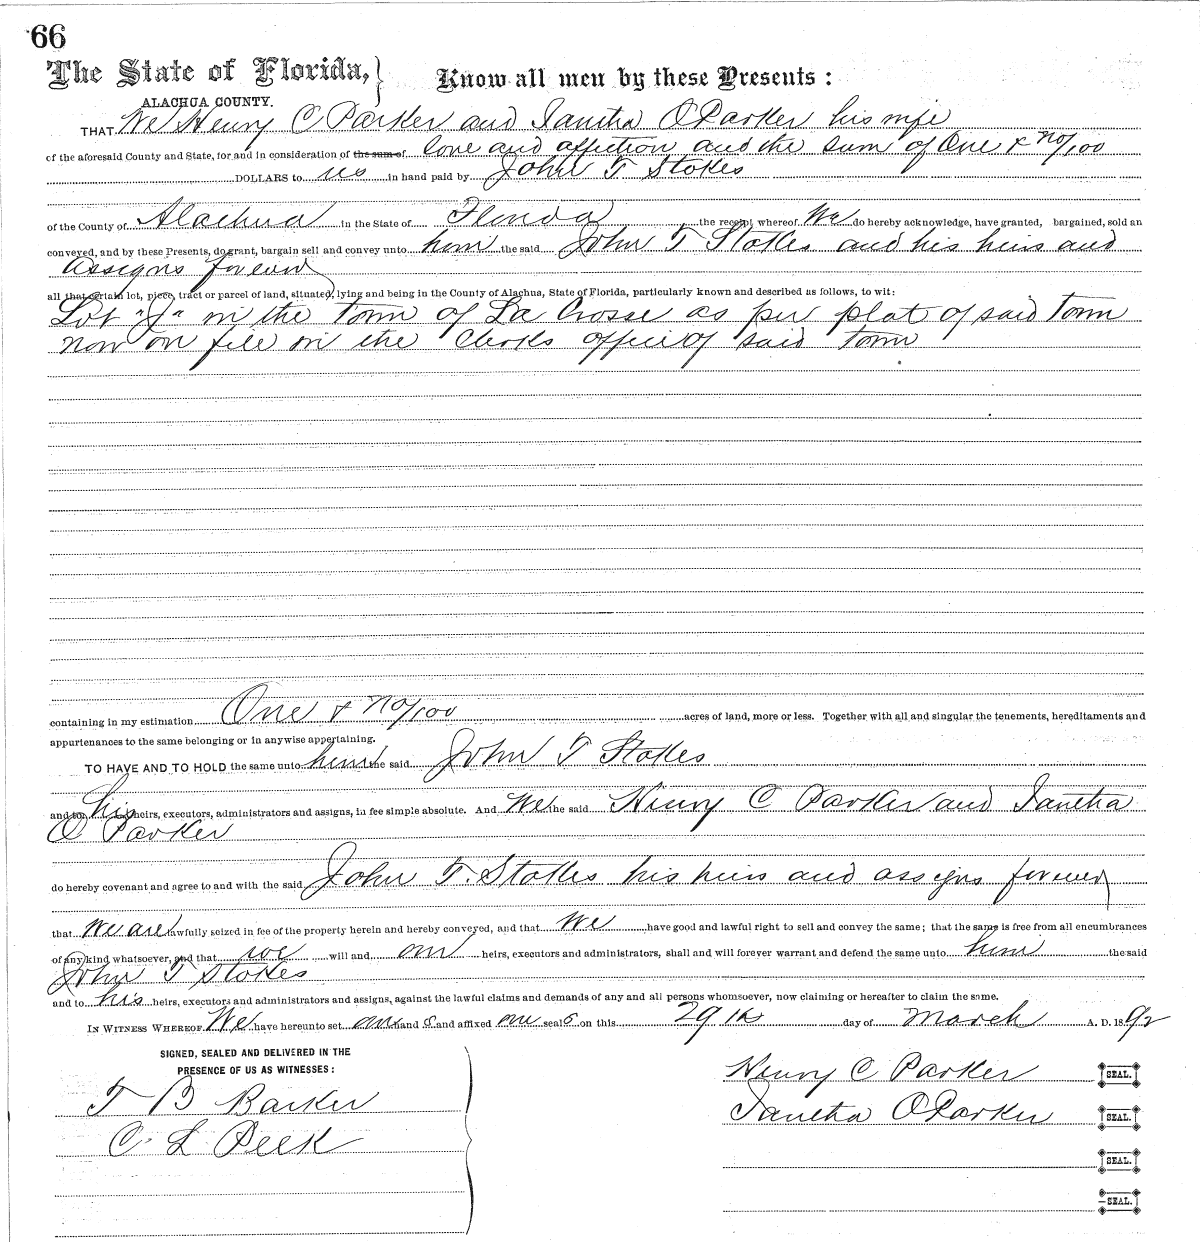 66
The State of Florida, } Know all men by these Presents :
ALACHUA COUNTY.
THAT We Henry C Parker and Iantha O Parker his wife
of the aforesaid County and State, for and in consideration of the sum of love and affection and the sum of One & no/100
DOLLARS to us in hand paid by John T Stokes
of the County of Alachua in the State of Florida the receipt whereof We do hereby acknowledge, have granted, bargained, sold an
conveyed, and by these Presents, do grant, bargain sell and convey unto him the said John T Stokes and his heirs and
assigns forever
all that certain lot, piece, tract or parcel of land, situated, lying and being in the County of Alachua, State of Florida, particularly known and described as follows, to wit:
Lot "J" in the town of La Crosse as per plat of said town
now on file in the clerks office of said town
containing in my estimation One & no/100 acres of land, more or less. Together with all and singular the tenements, hereditaments and
appurtenances to the same belonging or in anywise appertaining.
TO HAVE AND TO HOLD the same unto him the said John T Stokes
and to his heirs, executors, administrators and assigns, in fee simple absolute. And We the said Henry C Parker and Iantha
O Parker
do hereby covenant and agree to and with the said John T. Stokes his heirs and assigns forever
that We are lawfully seized in fee of the property herein and hereby conveyed, and that We have good and lawful right to sell and convey the same; that the same is free from all encumbrances
of any kind whatsoever, and that we will and our heirs, executors and administrators, shall and will forever warrant and defend the same unto him the said
John T Stokes
and to his heirs, executors and administrators and assigns, against the lawful claims and demands of any and all persons whomsoever, now claiming or hereafter to claim the same.
IN WITNESS WHEREOF We have hereunto set our hand s and affixed our seal s on this 29th day of March A. D. 1892
SIGNED, SEALED AND DELIVERED IN THE
PRESENCE OF US AS WITNESSES :
T B Barker
C. L Peek
Henry C Parker SEAL.
Iantha O Parker SEAL.
SEAL.
SEAL.